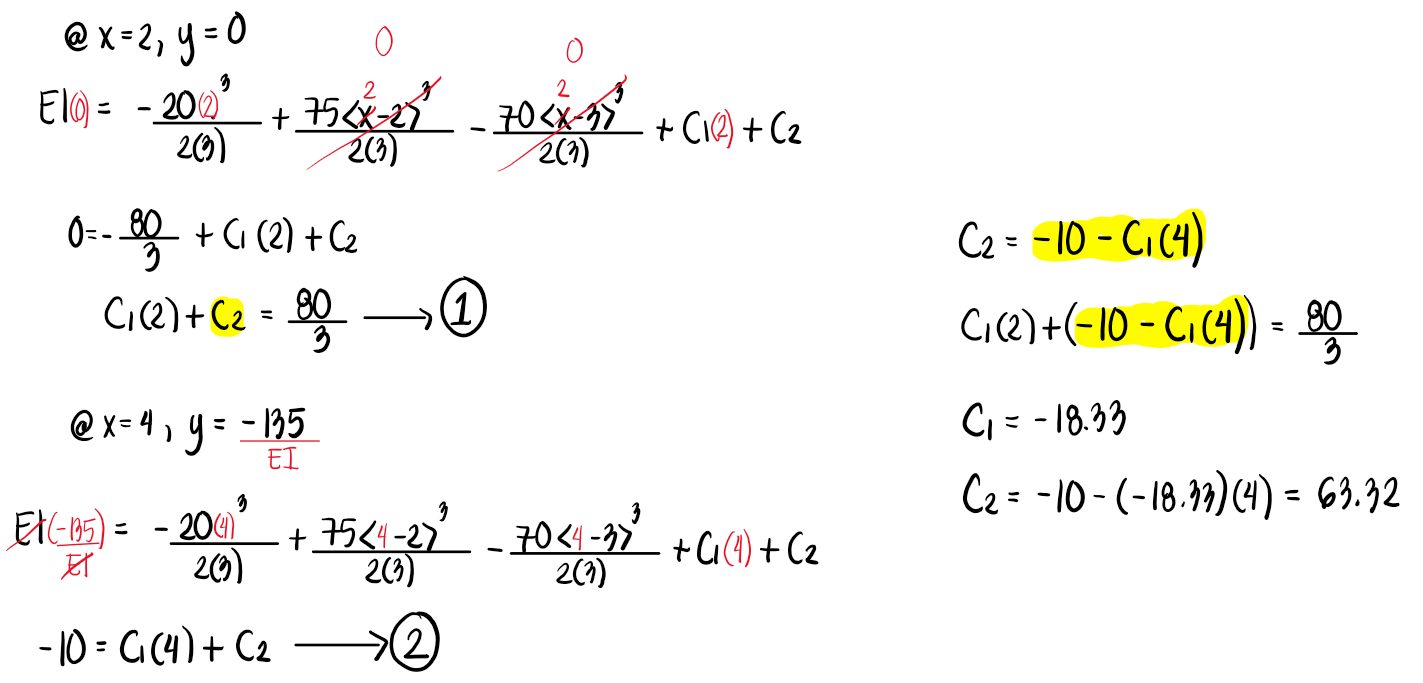 @ x=2, y=0
EI(0) = -20(2)³/2(3) + 75<x-2>³/2(3) - 70<x-3>³/2(3) + C₁(2) + C₂
2 0 2 0
0=-80/3 + C₁(2) + C₂
C₁(2) + C₂ = 80/3 ⟶ ①
@ x=4, y = -135/EI
EI(-135/EI) = -20(4)³/2(3) + 75<4-2>³/2(3) - 70<4-3>³/2(3) + C₁(4) + C₂
-10 = C₁(4) + C₂ ⟶ ②
C₂ = -10 - C₁(4)
C₁(2)+(-10 - C₁(4)) = 80/3
C₁ = -18.33
C₂ = -10-(-18.33)(4) = 63.32